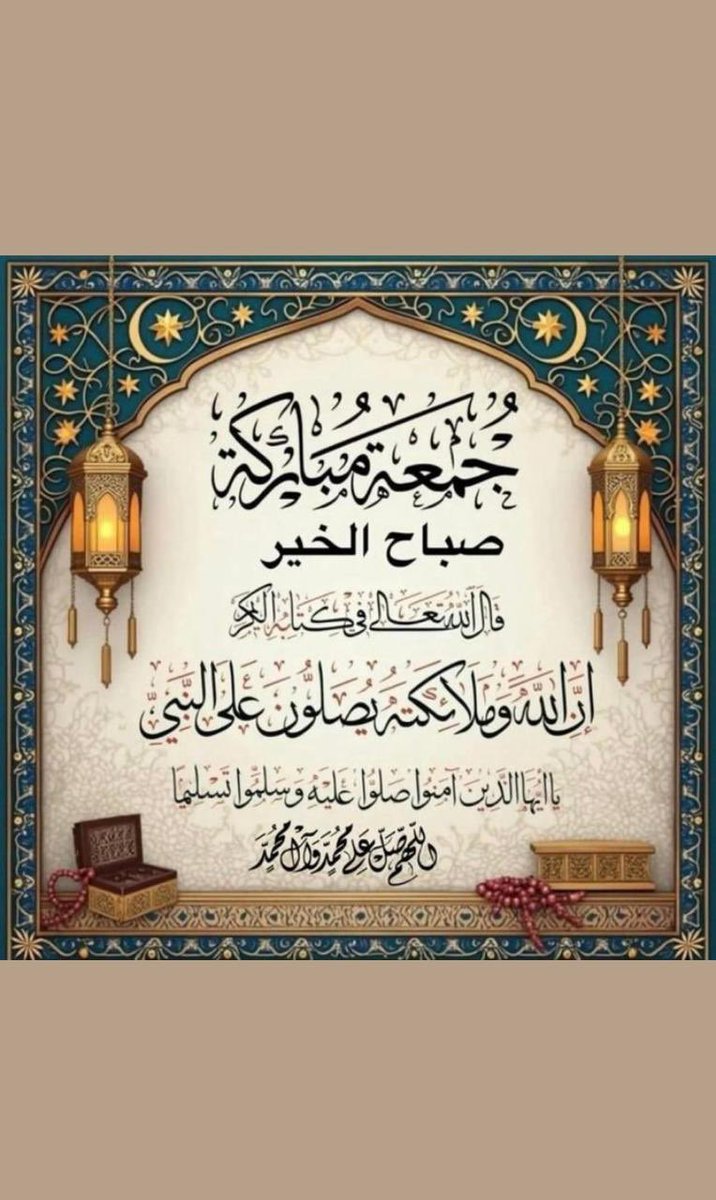 جُمعَة مُبَاركَة
صباح الخير
قال الله تعالى في كتابه الكريم
إنّ الله وملائكته يُصلّون على النبيّ
يا أيها الذين آمنوا صلّوا عليه وسلّموا تسليما
اللهم صلّ على محمّد وآل محمّد